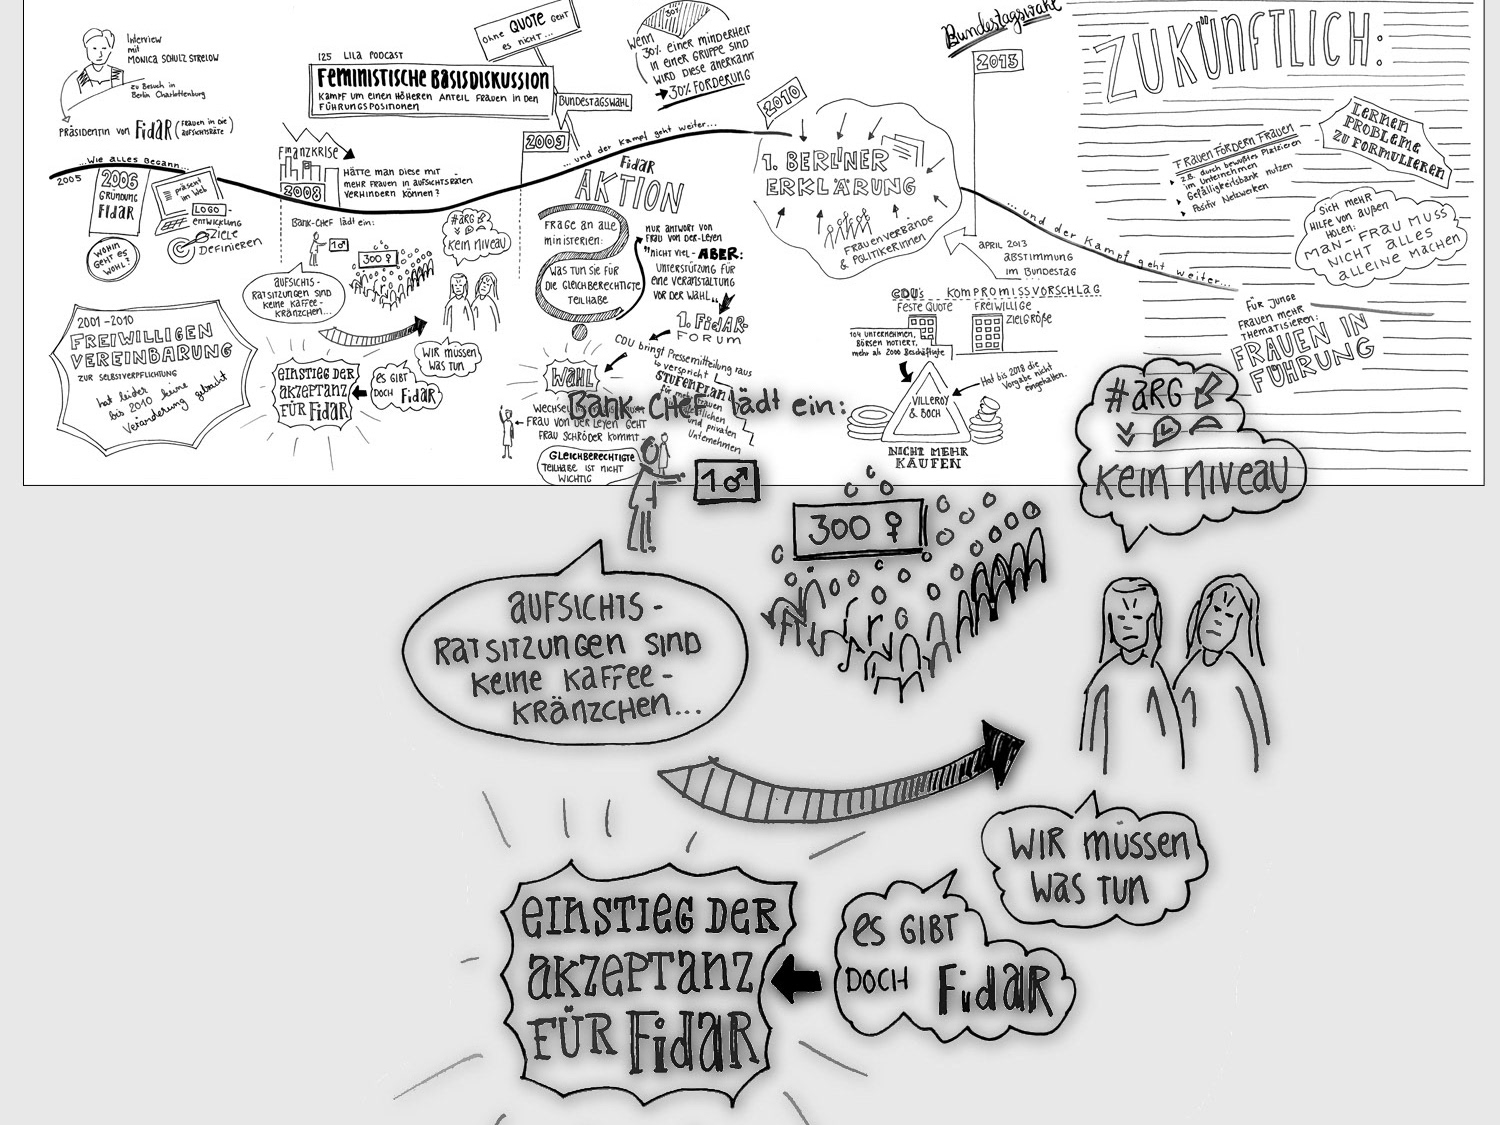 Interview
mit
MONICA SCHULZ STRELOW
zu Besuch in
Berlin Charlottenburg
PRÄSIDENTIN VON FidAR (FRAUEN IN DIE AUFSICHTSRÄTE)
125 LILA PODCAST
FEMINISTISCHE BASISDISKUSSION
KAMPF UM EINEN HÖHEREN ANTEIL FRAUEN IN DEN
FÜHRUNGSPOSITIONEN
OHNE QUOTE GEHT
ES NICHT...
BUNDESTAGSWAHL
2009
30%
WENN
30% EINER MINDERHEIT
IN EINER GRUPPE SIND
WIRD DIESE ANERKANNT
→ 30% FORDERUNG
Bundestagswahl
2013
ZUKÜNFTLICH:
2005
...WIE ALLES BEGANN...
2006
GRÜNDUNG
FidAR
WOHIN
GEHT ES
WOHL?
präsent
im Web
LOGO-
ENTWICKLUNG
ZIELE
DEFINIEREN
FINANZKRISE
2008
HÄTTE MAN DIESE MIT
MEHR FRAUEN IN AUFSICHTSRÄTEN
VERHINDERN KÖNNEN?
BANK-CHEF lädt ein:
1♂
300 ♀
#ARG
KEIN NIVEAU
AUFSICHTS-
RATSITZUNGEN SIND
KEINE KAFFEE-
KRÄNZCHEN...
WIR MÜSSEN
WAS TUN
EINSTIEG DER
AKZEPTANZ
FÜR FidAR
ES GIBT
DOCH FidAR
2001-2010
FREIWILLIGEN
VEREINBARUNG
ZUR SELBSTVERPFLICHTUNG
hat leider
bis 2010 keine
Veränderung gebracht
...und der Kampf geht weiter...
FidAR
AKTION
FRAGE AN ALLE
MINISTERIEN:
WAS TUN SIE FÜR
DIE GLEICHBERECHTIGTE
TEILHABE
NUR ANTWORT VON
FRAU VON DER LEYEN
"NICHT VIEL - ABER:
UNTERSTÜTZUNG FÜR
EINE VERANSTALTUNG
VOR DER WAHL"
1. FidAR-
FORUM
CDU bringt Pressemitteilung raus
verspricht
STUFENPLAN
für mehr Frauen
und privaten
Unternehmen
WAHL
WECHSEL
FRAU VON DER LEYEN GEHT
FRAU SCHRÖDER KOMMT
GLEICHBERECHTIGTE
TEILHABE IST NICHT
WICHTIG
2010
1. BERLINER
ERKLÄRUNG
FRAUENVERBÄNDE
& POLITIKERINNEN
APRIL 2013
ABSTIMMUNG
IM BUNDESTAG
...und der Kampf geht weiter...
CDU's KOMPROMISSVORSCHLAG
FESTE QUOTE
FREIWILLIGE
ZIELGRÖßE
104 UNTERNEHMEN,
BÖRSEN NOTIERT,
mehr als 2000 Beschäftigte
VILLEROY
& BOCH
Hat bis 2018 die
Vorgabe nicht
eingehalten.
NICHT MEHR
KAUFEN
FRAUEN FÖRDERN FRAUEN
z.B. durch bewußtes Platzieren
im Unternehmen
Gefälligkeitsbank nutzen
Positiv Netzwerken
LERNEN
PROBLEME
ZU FORMULIEREN
SICH MEHR
HILFE VON AUßEN
HOLEN:
MAN-FRAU MUSS
NICHT ALLES
ALLEINE MACHEN
FÜR JUNGE
FRAUEN MEHR
THEMATISIEREN:
FRAUEN IN
FÜHRUNG
BANK-CHEF lädt ein:
1♂
300 ♀
#ARG
KEIN NIVEAU
AUFSICHTS-
RATSITZUNGEN SIND
KEINE KAFFEE-
KRÄNZCHEN...
WIR MÜSSEN
WAS TUN
EINSTIEG DER
AKZEPTANZ
FÜR FidAR
ES GIBT
DOCH FidAR